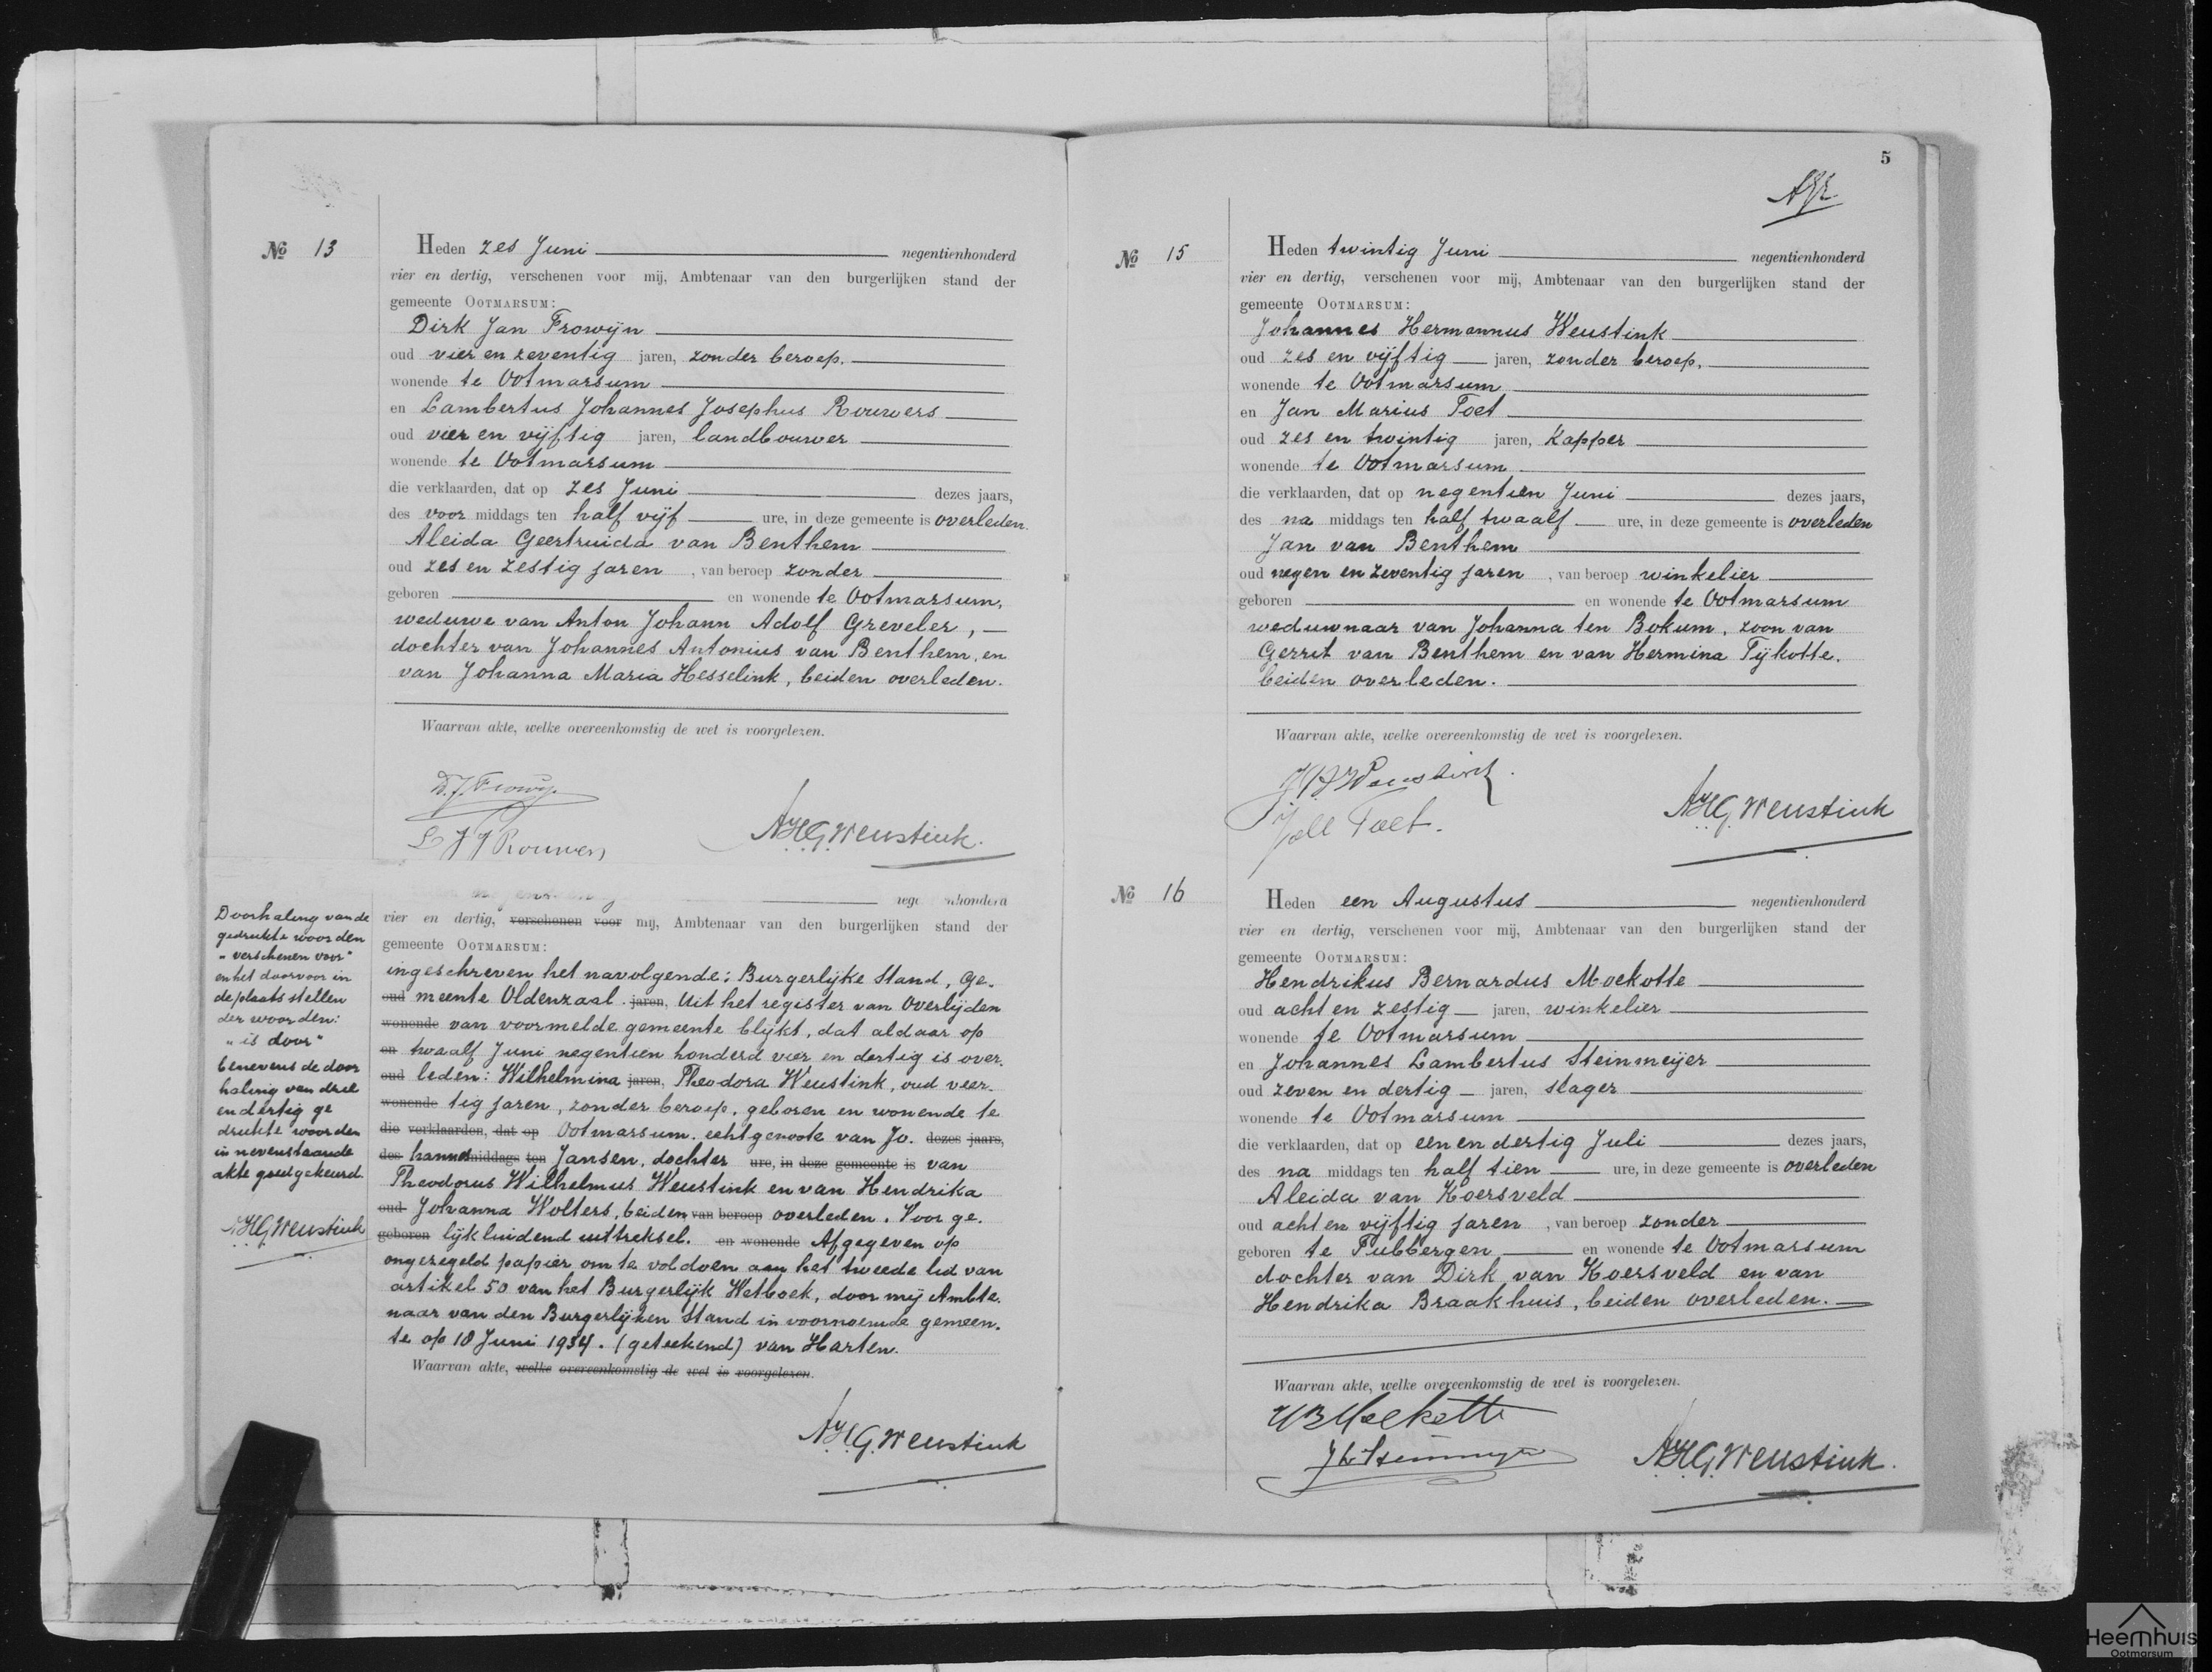 № 13
Heden zes Juni negentienhonderd
vier en dertig, verschenen voor mij, Ambtenaar van den burgerlijken stand der
gemeente OOTMARSUM:
Dirk Jan Frowijn
oud vier en zeventig jaren, zonder beroep,
wonende te Ootmarsum
en Lambertus Johannes Josephus Rouwers
oud vier en vijftig jaren, landbouwer
wonende te Ootmarsum
die verklaarden, dat op zes Juni dezes jaars,
des voor middags ten half vijf ure, in deze gemeente is overleden
Aleida Geertruida van Benthem
oud zes en zestig jaren, van beroep zonder
geboren en wonende te Ootmarsum,
weduwe van Anton Johann Adolf Greveler,
dochter van Johannes Antonius van Benthem, en
van Johanna Maria Hesselink, beiden overleden.
Waarvan akte, welke overeenkomstig de wet is voorgelezen.
D. J. Frowijn
L J J Rouwers
A.H.G. Weustink.
Doorhaling van de
gedrukte woorden
"verschenen voor"
en het daarvoor in
de plaats stellen
der woorden:
"is door"
benevens de door
haling van drie
en dertig ge
drukte woorden
in nevenstaande
akte goedgekeurd.
A.H.G. Weustink
vier en dertig, verschenen voor mij, Ambtenaar van den burgerlijken stand der
gemeente OOTMARSUM:
ingeschreven het navolgende: Burgerlijke Stand, Ge-
oud meente Oldenzaal. jaren, Uit het register van Overlijden
wonende van voormelde gemeente blijkt, dat aldaar op
en twaalf Juni negentien honderd vier en dertig is over-
oud leden: Wilhelmina jaren, Theodora Weustink, oud veer-
wonende tig jaren, zonder beroep, geboren en wonende te
die verklaarden, dat op Ootmarsum, echtgenoote van Jo- dezes jaars,
des hannes middags ten Jansen, dochter ure, in deze gemeente is van
Theodorus Wilhelmus Weustink en van Hendrika
oud Johanna Wolters, beiden van beroep overleden. Voor ge-
geboren lijkluidend uittreksel. en wonende Afgegeven op
ongezegeld papier om te voldoen aan het tweede lid van
artikel 50 van het Burgerlijk Wetboek, door mij Ambte-
naar van den Burgerlijken Stand in voornoemde gemeen-
te op 18 Juni 1934. (geteekend) van Harten.
Waarvan akte, welke overeenkomstig de wet is voorgelezen.
A.H.G. Weustink
5
№ 15
Heden twintig Juni negentienhonderd
vier en dertig, verschenen voor mij, Ambtenaar van den burgerlijken stand der
gemeente OOTMARSUM:
Johannes Hermannus Weustink
oud zes en vijftig jaren, zonder beroep,
wonende te Ootmarsum
en Jan Marius Toet
oud zes en twintig jaren, kapper
wonende te Ootmarsum
die verklaarden, dat op negentien Juni dezes jaars,
des na middags ten half twaalf ure, in deze gemeente is overleden
Jan van Benthem
oud negen en zeventig jaren, van beroep winkelier
geboren en wonende te Ootmarsum
weduwnaar van Johanna ten Bokum, zoon van
Gerrit van Benthem en van Hermina Tijkotte.
beiden overleden.
Waarvan akte, welke overeenkomstig de wet is voorgelezen.
J H Weustink.
J M Toet.
A.H.G. Weustink
№ 16
Heden een Augustus negentienhonderd
vier en dertig, verschenen voor mij, Ambtenaar van den burgerlijken stand der
gemeente OOTMARSUM:
Hendrikus Bernardus Moekotte
oud acht en zestig jaren, winkelier
wonende te Ootmarsum
en Johannes Lambertus Steinmeijer
oud zeven en dertig jaren, slager
wonende te Ootmarsum
die verklaarden, dat op een en dertig Juli dezes jaars,
des na middags ten half tien ure, in deze gemeente is overleden
Aleida van Koersveld
oud acht en vijftig jaren, van beroep zonder
geboren te Tubbergen en wonende te Ootmarsum
dochter van Dirk van Koersveld en van
Hendrika Braakhuis, beiden overleden.
Waarvan akte, welke overeenkomstig de wet is voorgelezen.
H B Moekotte
J L Steinmeijer
A.H.G. Weustink.
Heemhuis
Ootmarsum